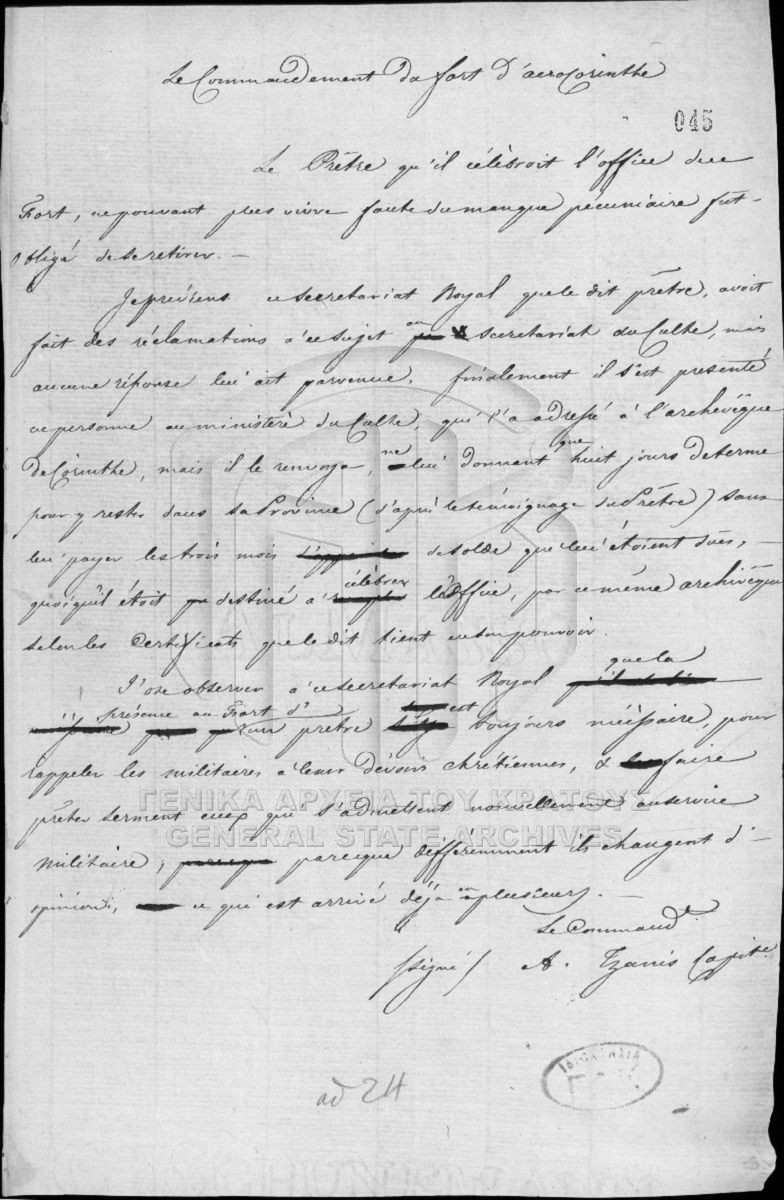 Le Commandement du fort D'acrocorinthe
045
Le Prêtre qu'il célèbroit l'office du
Fort, ne pouvant plus vivre faute du manque pécuniaire fut
obligé de se retirer. —
Je préviens ce secretariat Royal que le dit prêtre, avoit
fait des réclamations à ce sujet au secretariat du Culte, mais
aucune réponse lui ait parvenue, finalement il s'est presenté
en personne au ministère du Culte, qui l'a adressé à l'archevêque
de Corinthe, mais il le renvoya, ne lui donnant que huit jours de terme
pour y rester dans sa Province (d'après le témoignage du Prêtre) sans
lui payer les trois mois de solde que lui étoient dûs, —
quoiqu'il étoit destiné à célébrer l'office, par ce même archevêque
selon les Certificats que le dit tient en son pouvoir.
J'ose observer à ce secretariat Royal que la
présence au Fort d'un prêtre est toujours nécessaire, pour
rappeler les militaires à leur dévoirs chretiennes, & faire
prêter serment ceux qui s'admettent nouvellement au service
militaire, pareque différemment ils changent d'
opinions, ce qui est arrivé déjà en plusieurs. —
Le Command.t
(signé) A. Tzanis Capit.e
ad 24
ΓΕΝΙΚΑ ΑΡΧΕΙΑ ΤΟΥ ΚΡΑΤΟΥΣ
GENERAL STATE ARCHIVES